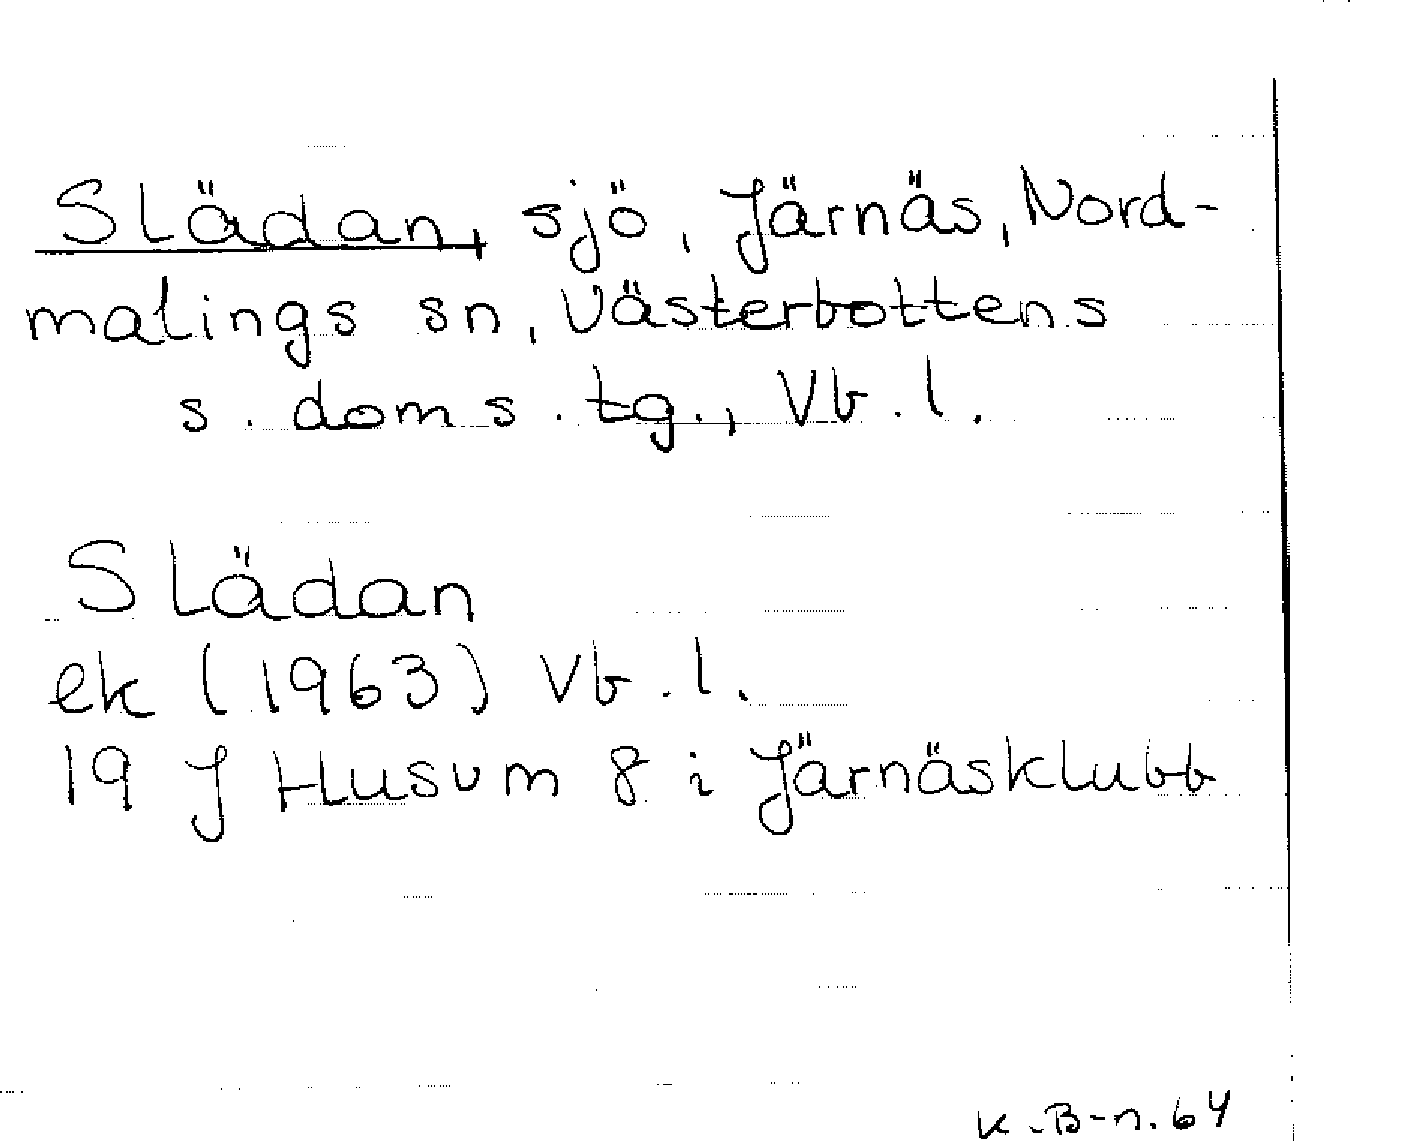 Slädan, sjö, Järnäs, Nord-
malings sn, Västerbottens
s. doms. tg., Vb. l.
Slädan
ek (1963) Vb. l.
19 J Husum 8 i Järnäsklubb
K.B-n. 64